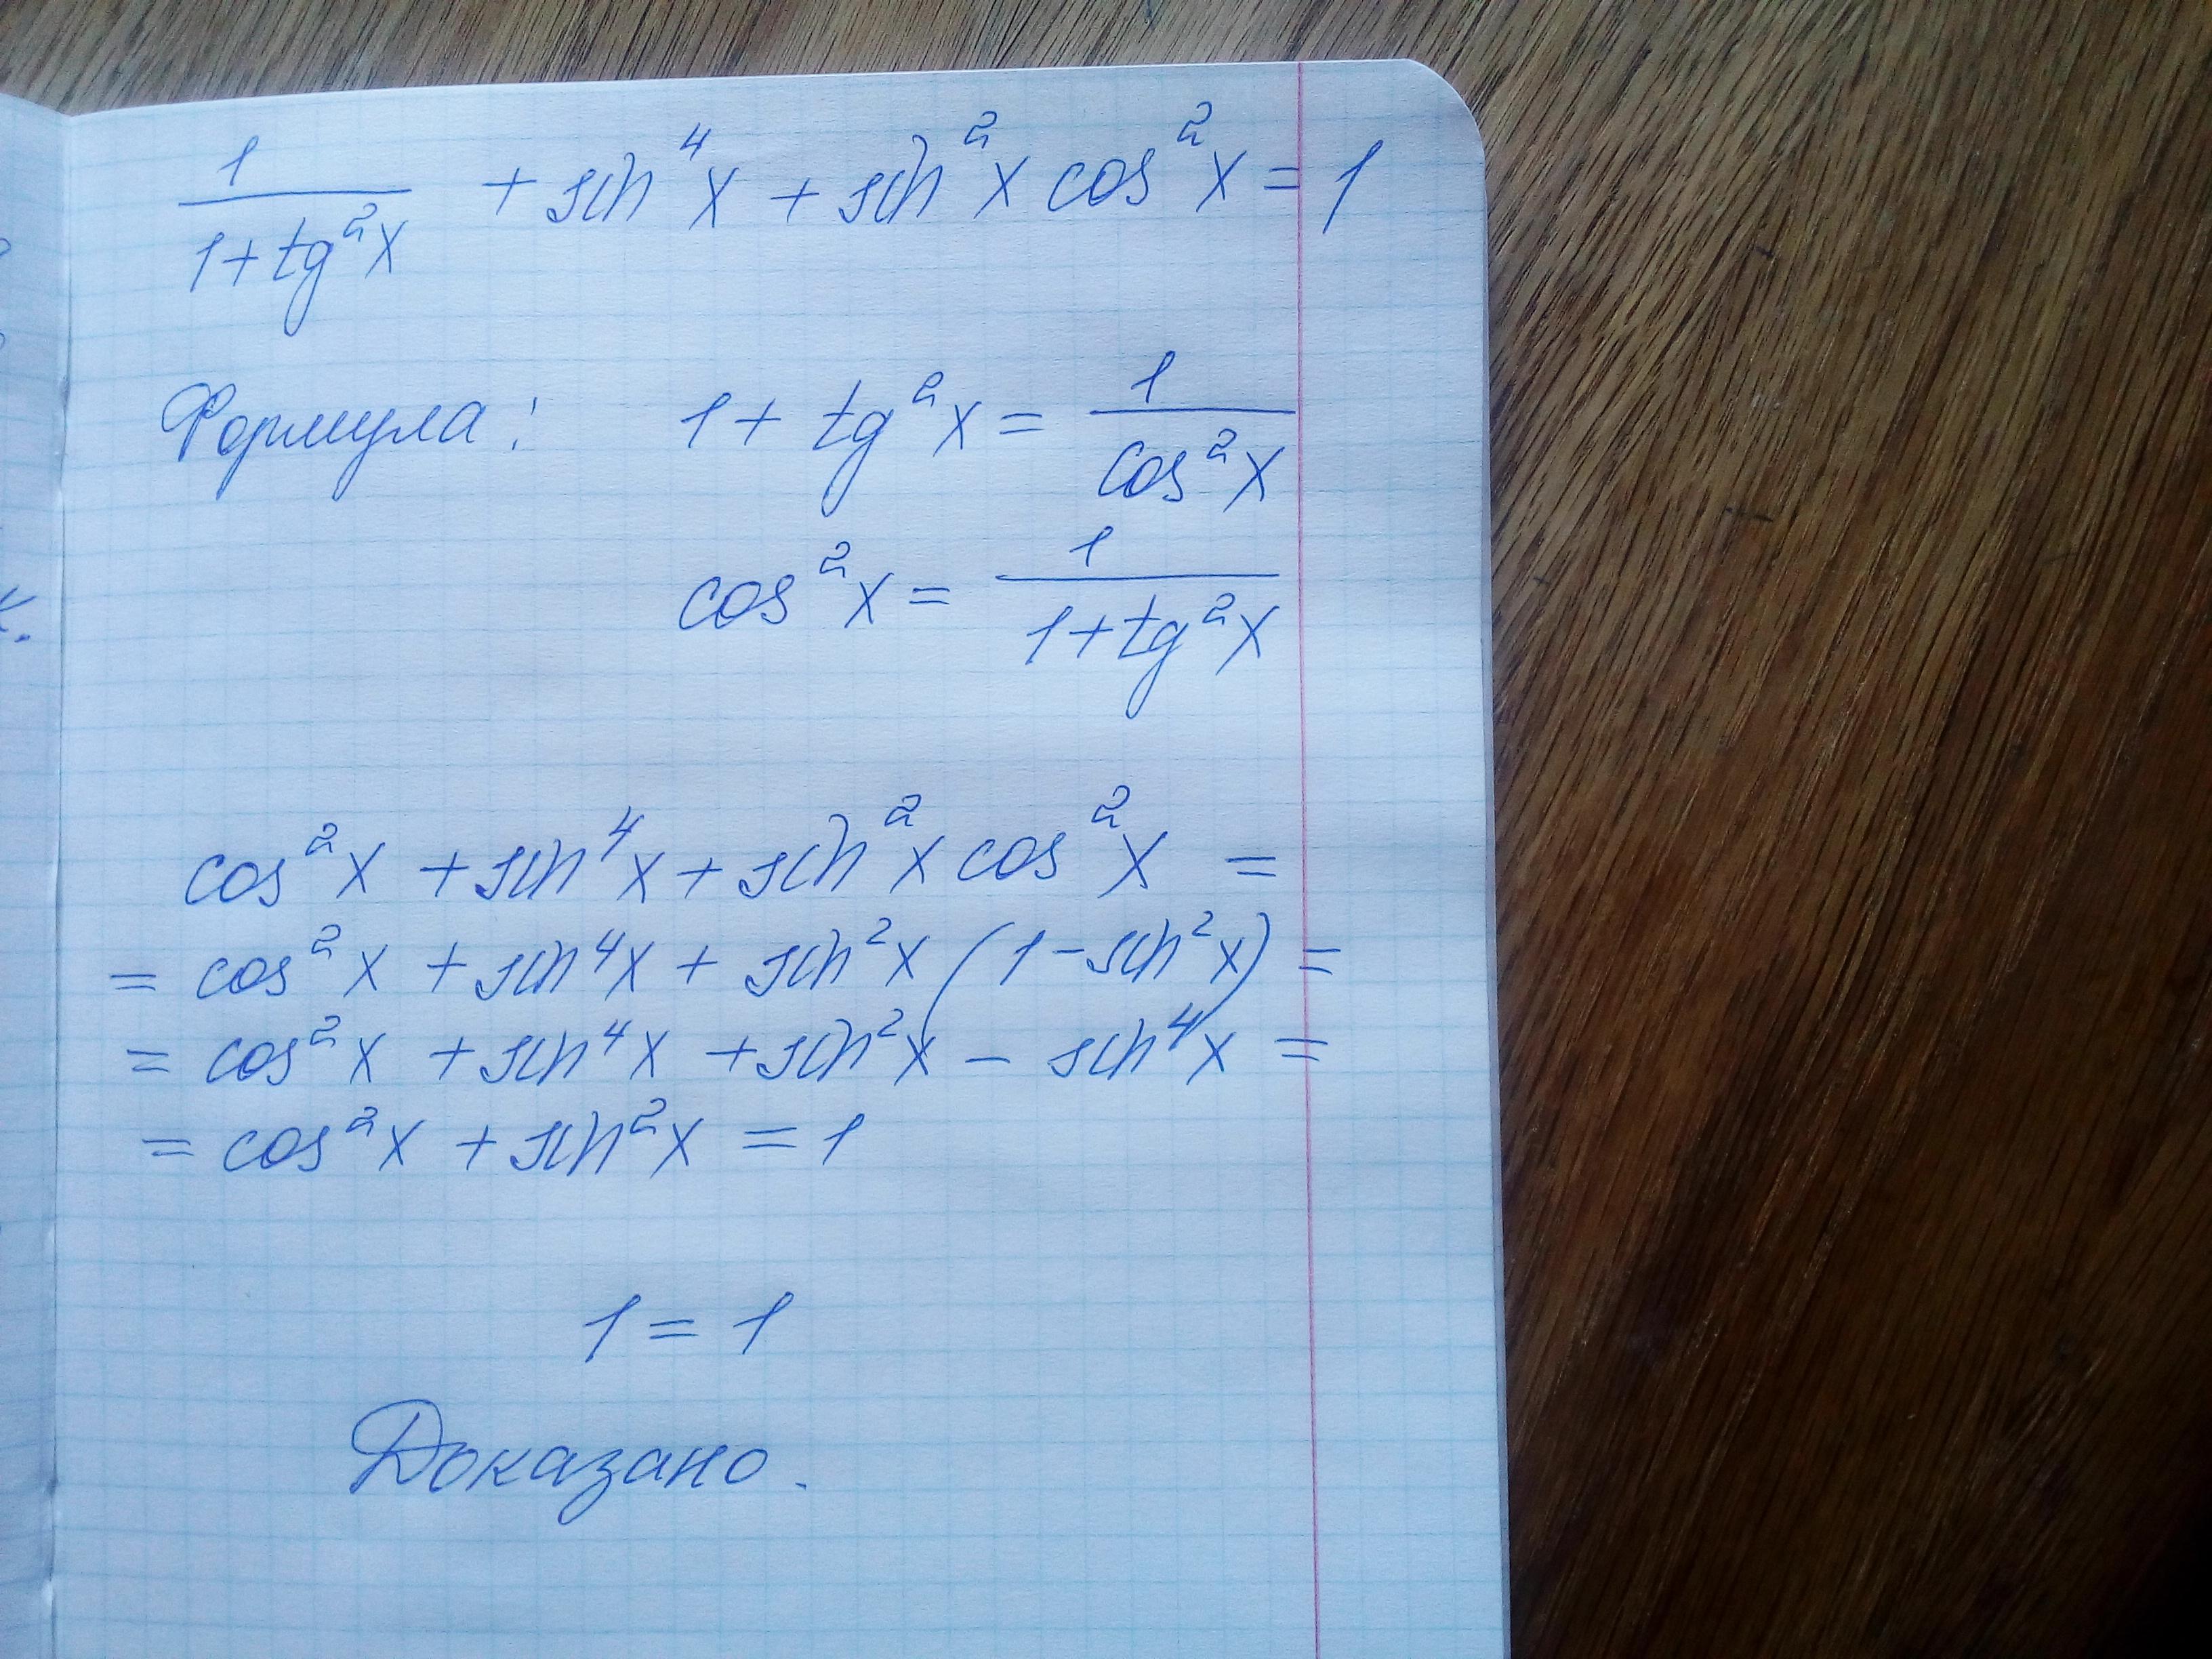 1/(1+tg²x) + sin⁴x + sin²x cos²x = 1
Формула: 1 + tg²x = 1/cos²x
cos²x = 1/(1+tg²x)
cos²x + sin⁴x + sin²x cos²x =
= cos²x + sin⁴x + sin²x (1 - sin²x) =
= cos²x + sin⁴x + sin²x - sin⁴x =
= cos²x + sin²x = 1
1 = 1
Доказано.